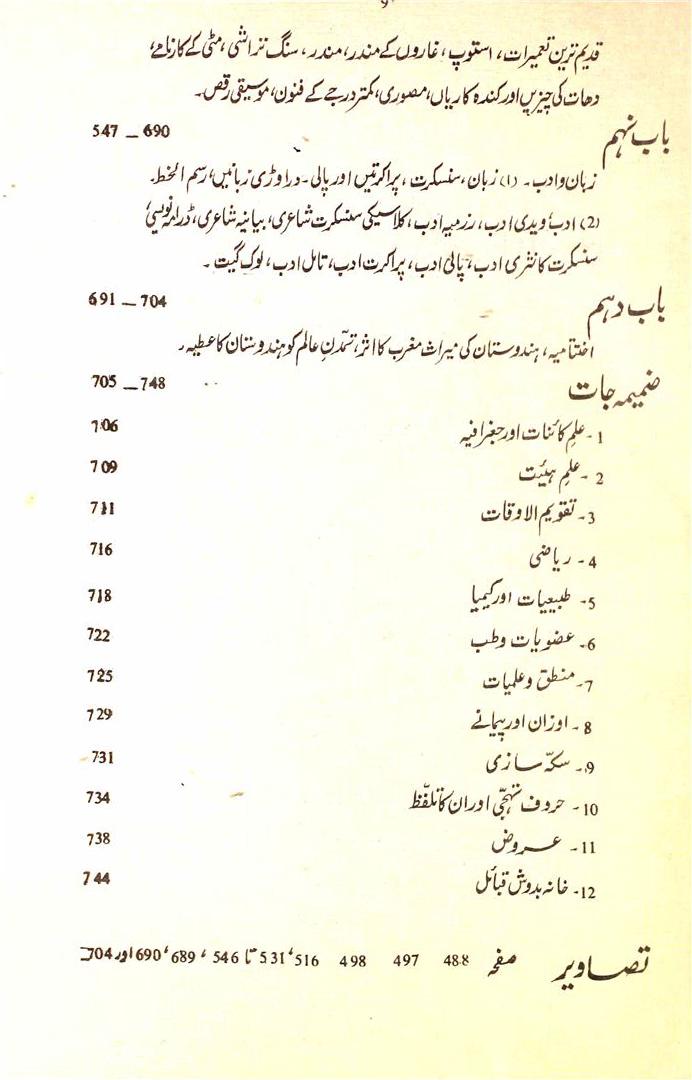 9
قدیم ترین تعمیرات، استوپ، غاروں کے مندر، مندر، سنگ تراشی، مٹی کے کارنامے،
دھات کی چیزیں اور کندہ کاریاں، مصوری، کمتر درجے کے فنون، موسیقی رقص۔
باب نہم 547 — 690
زبان و ادب۔ (1) زبان، سنسکرت، پراکرتیں اور پالی۔ دراوڑی زبانیں، رسم الخط۔
(2) ادب ویدی ادب، رزمیہ ادب، کلاسیکی سنسکرت شاعری، بیانیہ شاعری، ڈرامہ نویسی،
سنسکرت کا نثری ادب، پالی ادب، پراکرت ادب، تامل ادب، لوک گیت۔
باب دہم 691 — 704
اختتامیہ، ہندوستان کی میراث مغرب کا اثر، تمدنِ عالم کو ہندوستان کا عطیہ،
ضمیمہ جات 705 — 748
1۔ علم کائنات اور جغرافیہ 706
2۔ علم ہیئت 709
3۔ تقویم الاوقات 711
4۔ ریاضی 716
5۔ طبیعیات اور کیمیا 718
6۔ عضویات و طب 722
7۔ منطق و علمیات 725
8۔ اوزان اور پیمانے 729
9۔ سکّہ سازی 731
10۔ حروف تہجّی اور ان کا تلفّظ 734
11۔ عروض 738
12۔ خانہ بدوش قبائل 744
تصاویر صفحہ 488 497 498 516، 531 تا 546، 689، 690 اور 704